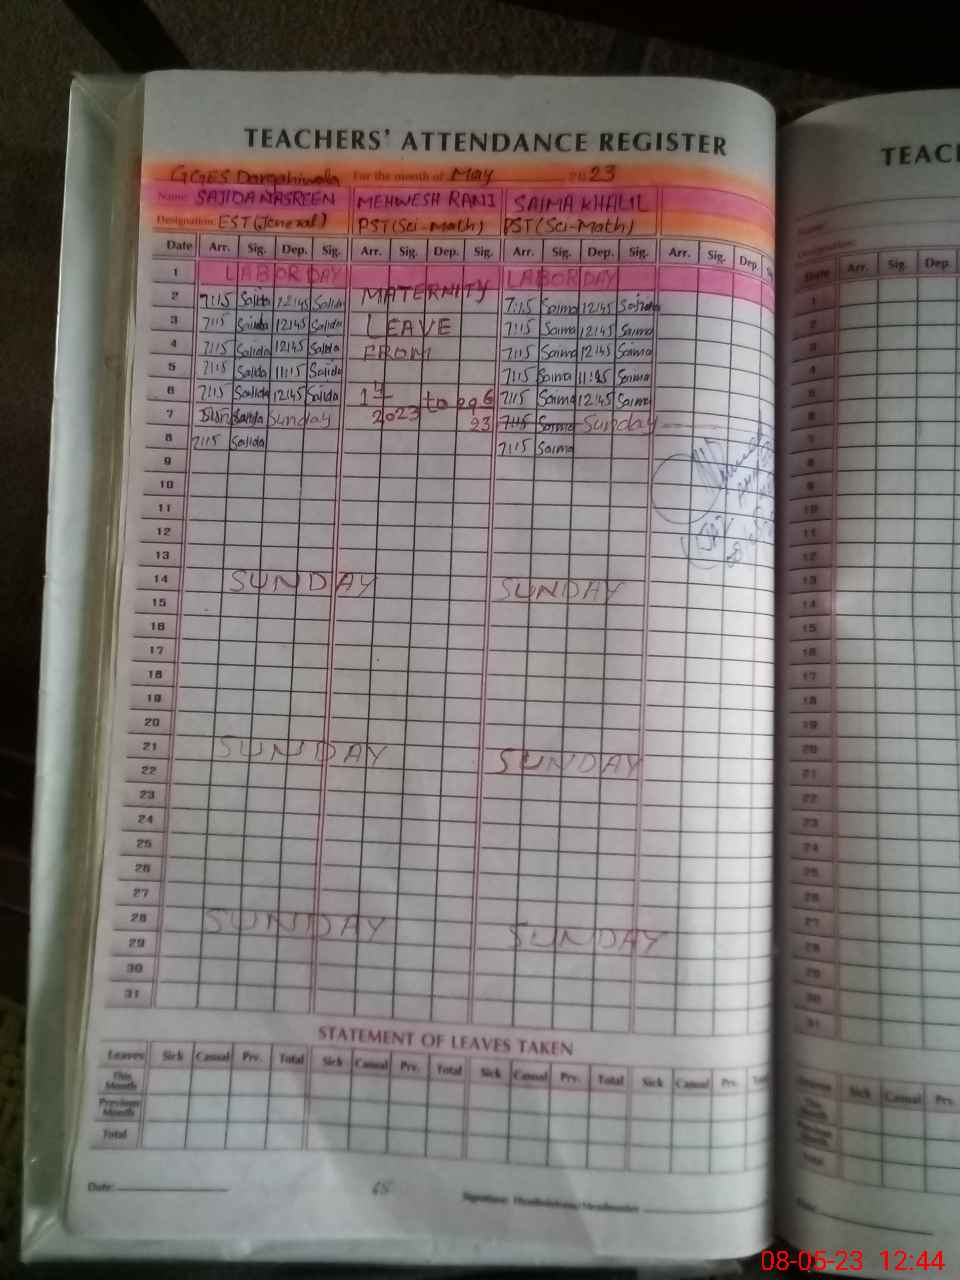 TEACHERS' ATTENDANCE REGISTER
GGES Dargahiwala For the month of May 2023
Name: SAJIDA NASREEN MEHWESH RANI SAIMA KHALIL
Designation: EST (General) PST (Sci-Math) PST (Sci-Math)
Date Arr. Sig. Dep. Sig. Arr. Sig. Dep. Sig. Arr. Sig. Dep. Sig. Arr. Sig. Dep.
1 LABOR DAY LABOR DAY
2 7:15 Sajida 12:45 Sajida MATERNITY 7:15 Saima 12:45
3 7:15 Sajida 12:45 Sajida LEAVE 7:15 Saima 12:45 Saima
4 7:15 Sajida 12:45 Sajida FROM 7:15 Saima 12:45 Saima
5 7:15 Sajida 11:15 Sajida 7:15 Saima 11:15 Saima
6 7:15 Sajida 12:45 Sajida 1 4 2023 to 29 6 23 7:15 Saima 12:45 Saima
7 Sunday 7:15 Saima Sunday
8 7:15 Sajida 7:15 Saima
9
10
11
12
13
14 SUNDAY SUNDAY
15
16
17
18
19
20
21 SUNDAY SUNDAY
22
23
24
25
26
27
28 SUNDAY SUNDAY
29
30
31
STATEMENT OF LEAVES TAKEN
Leaves Sick Casual Prv. Total Sick Casual Prv. Total Sick Casual Prv. Total Sick Casual Prv.
This Month
Previous Month
Total
Date:
Signature Headmistress/Headmaster
TEAC
Date Arr. Sig. Dep.
Sick Casual Prv.
08-05-23 12:44